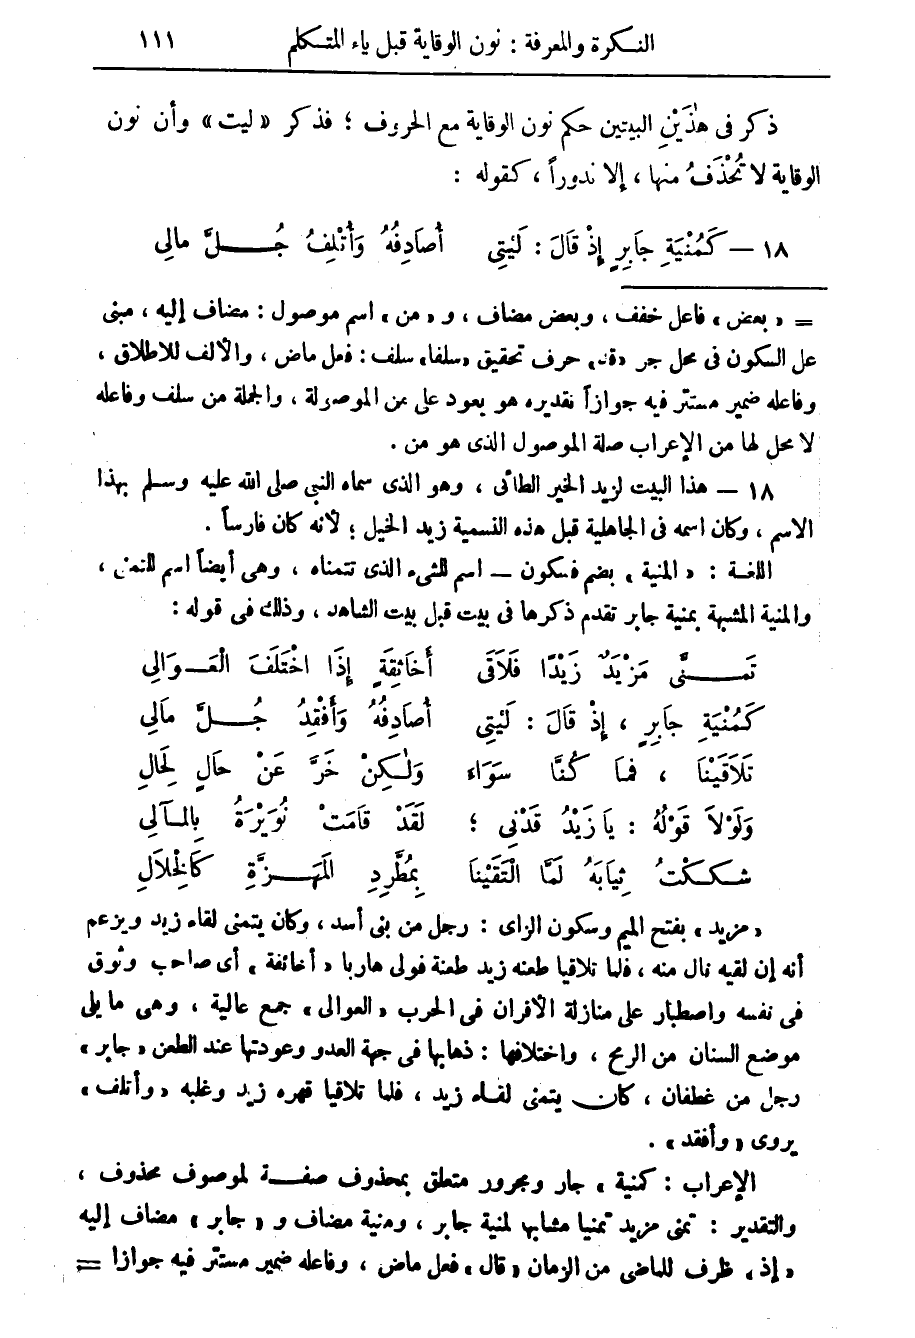 النكرة والمعرفة : نون الوقاية قبل ياء المتكلم ١١١
ذكر فى هٰذَيْنِ البيتين حكم نون الوقاية مع الحروف ؛ فذكر «ليت» وأن نون
الوقاية لا تُحْذَفُ منها ، إلا ندوراً ، كقوله :
١٨ — كَمُنْيَةِ جَابِرٍ إِذْ قَالَ : لَيْتِى أُصَادِفُهُ وَأُتْلِفُ جُلَّ مالِى
= «بعض» فاعل خفف ، وبعض مضاف ، و «من» اسم موصول : مضاف إليه ، مبنى
على السكون فى محل جر «قد» حرف تحقيق «سلفا» سلف : فعل ماض ، والألف للاطلاق ،
وفاعله ضمير مستتر فيه جوازاً تقديره هو يعود على من الموصولة ، والجملة من سلف وفاعله
لا محل لها من الإعراب صلة الموصول الذى هو من .
١٨ — هذا البيت لزيد الخير الطائى ، وهو الذى سماه النبى صلى الله عليه وسلم بهذا
الاسم ، وكان اسمه فى الجاهلية قبل هذه التسمية زيد الخيل ؛ لأنه كان فارساً .
اللغة : «المنية» بضم فسكون — اسم للشىء الذى تتمناه ، وهى أيضاً اسم للتمنى ،
والمنية المشبهة بمنية جابر تقدم ذكرها فى بيت قبل بيت الشاهد ، وذلك فى قوله :
تَمَنَّى مَزْيَدٌ زَيْدًا فَلَاقَى أَخَاثِقَةٍ إِذَا اخْتَلَفَ الْعَوَالِى
كَمُنْيَةِ جَابِرٍ ، إِذْ قَالَ : لَيْتِى أُصَادِفُهُ وَأَفْقِدُ جُلَّ مَالِى
تَلَاقَيْنَا ، فَمَا كُنَّا سَوَاء وَلٰكِنْ خَرَّ عَنْ حَالٍ لِحَالِ
وَلَوْلَا قَوْلُهُ : يَا زَيْدُ قَدْنِى ؛ لَقَدْ قَامَتْ نُوَيْرَةُ بِالمَآلِى
شَكَكْتُ ثِيَابَهُ لَمَّا الْتَقَيْنَا بِمُطَّرِدِ الْمَهَزَّةِ كَالْخِلَالِ
«مزيد» بفتح الميم وسكون الزاى : رجل من بنى أسد ، وكان يتمنى لقاء زيد ويزعم
أنه إن لقيه نال منه ، فلما تلاقيا طعنه زيد طعنة فولى هاربا «أخاثقة» أى صاحب وثوق
فى نفسه واصطبار على منازلة الأقران فى الحرب «العوالى» جمع عالية ، وهى ما يلى
موضع السنان من الرمح ، واختلافها : ذهابها فى جهة العدو وعودتها عند الطعن «جابر»
رجل من غطفان ، كان يتمنى لقاء زيد ، فلما تلاقيا قهره زيد وغلبه «وأتلف»
يروى «وأفقد» .
الإعراب : كمنية » جار ومجرور متعلق بمحذوف صفة لموصوف محذوف ،
والتقدير : تمنى مزيد تمنيا مشابها لمنية جابر ، ومنية مضاف و «جابر» مضاف إليه
«إذ» ظرف للماضى من الزمان «قال» فعل ماض ، وفاعله ضمير مستتر فيه جوازا =